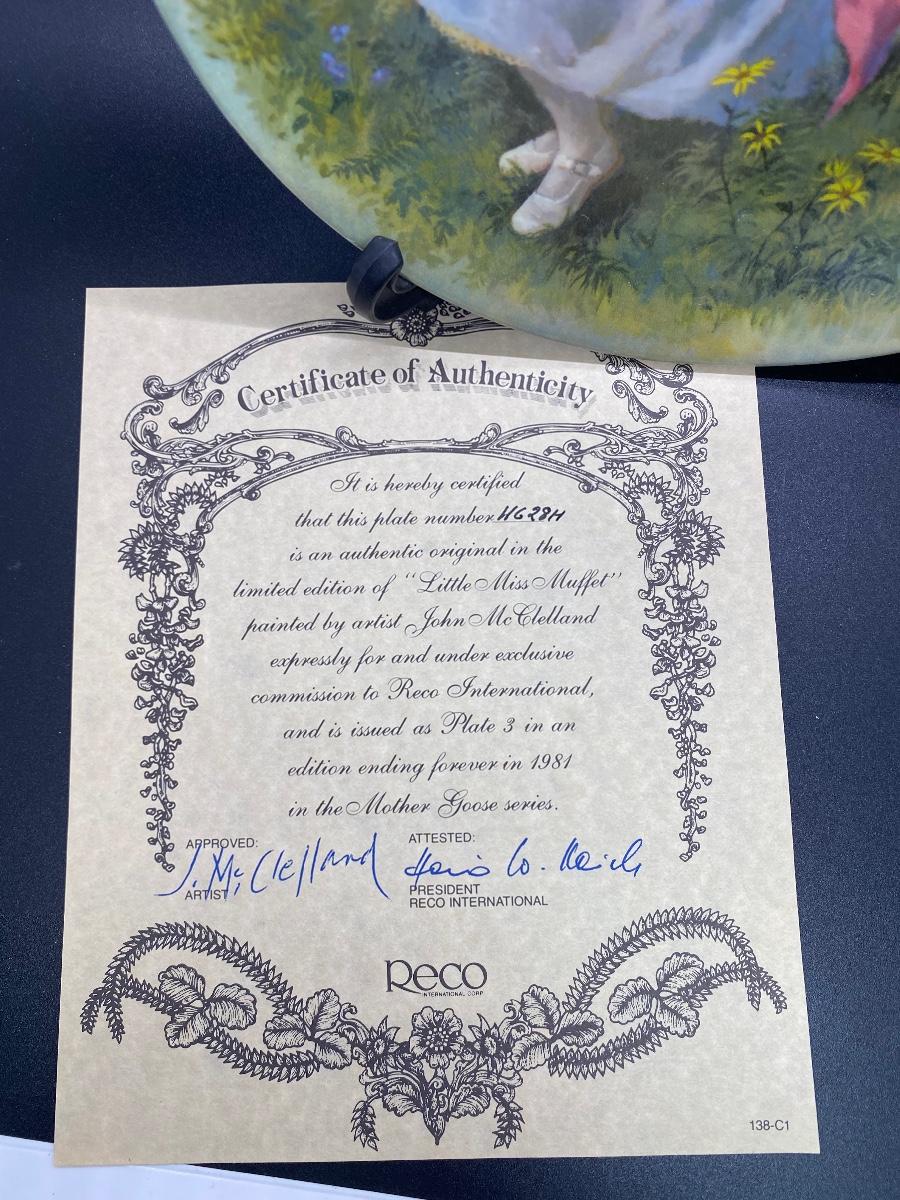 Certificate of Authenticity
It is hereby certified
that this plate number HG28H
is an authentic original in the
limited edition of "Little Miss Muffet"
painted by artist John McClelland
expressly for and under exclusive
commission to Reco International,
and is issued as Plate 3 in an
edition ending forever in 1981
in the Mother Goose series.
APPROVED: ATTESTED:
J. McClelland
ARTIST PRESIDENT
RECO INTERNATIONAL
Reco
INTERNATIONAL CORP
138-C1